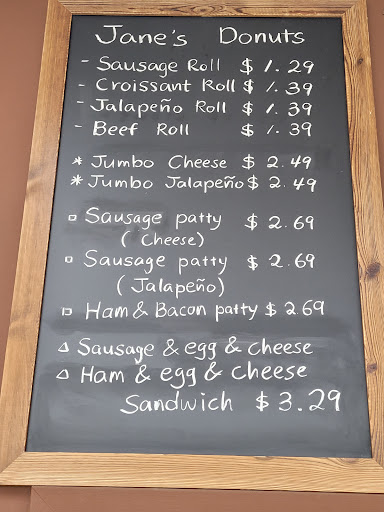 Jane's Donuts
- Sausage Roll $ 1.29
- Croissant Roll $ 1.39
- Jalapeño Roll $ 1.39
- Beef Roll $ 1.39
* Jumbo Cheese $ 2.49
* Jumbo Jalapeño $ 2.49
▫ Sausage patty $ 2.69
(Cheese)
▫ Sausage patty $ 2.69
(Jalapeño)
▫ Ham & Bacon patty $ 2.69
△ Sausage & egg & cheese
△ Ham & egg & cheese
Sandwich $ 3.29